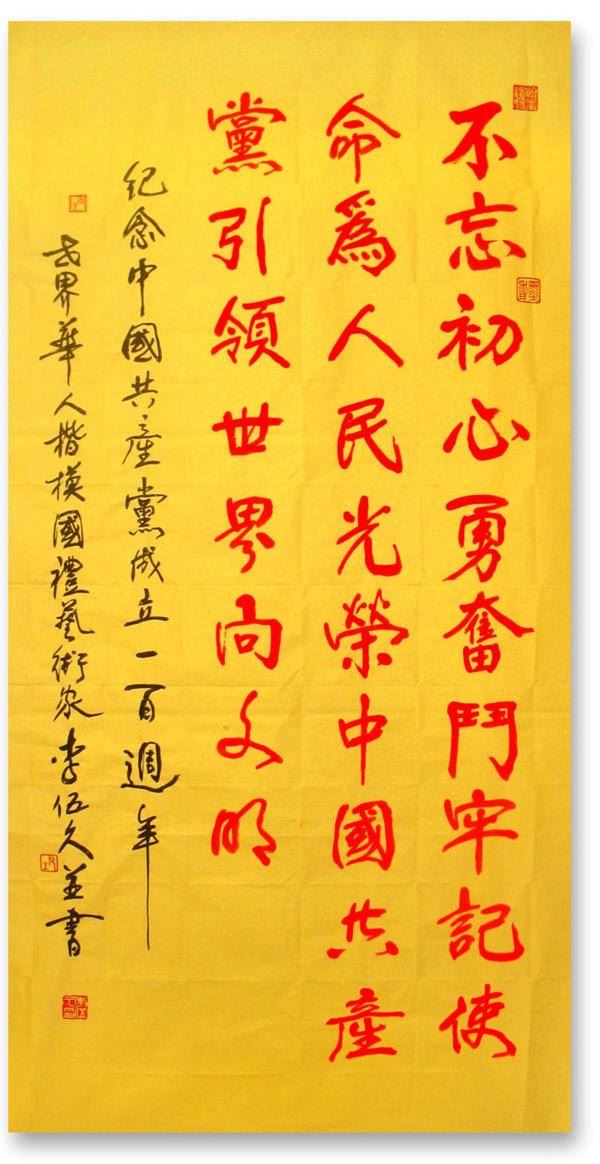 不忘初心勇奮鬥牢記使
命爲人民光榮中國共產
黨引領世界向文明
紀念中國共產黨成立一百週年
世界華人楷模國禮藝術家李伍久並書